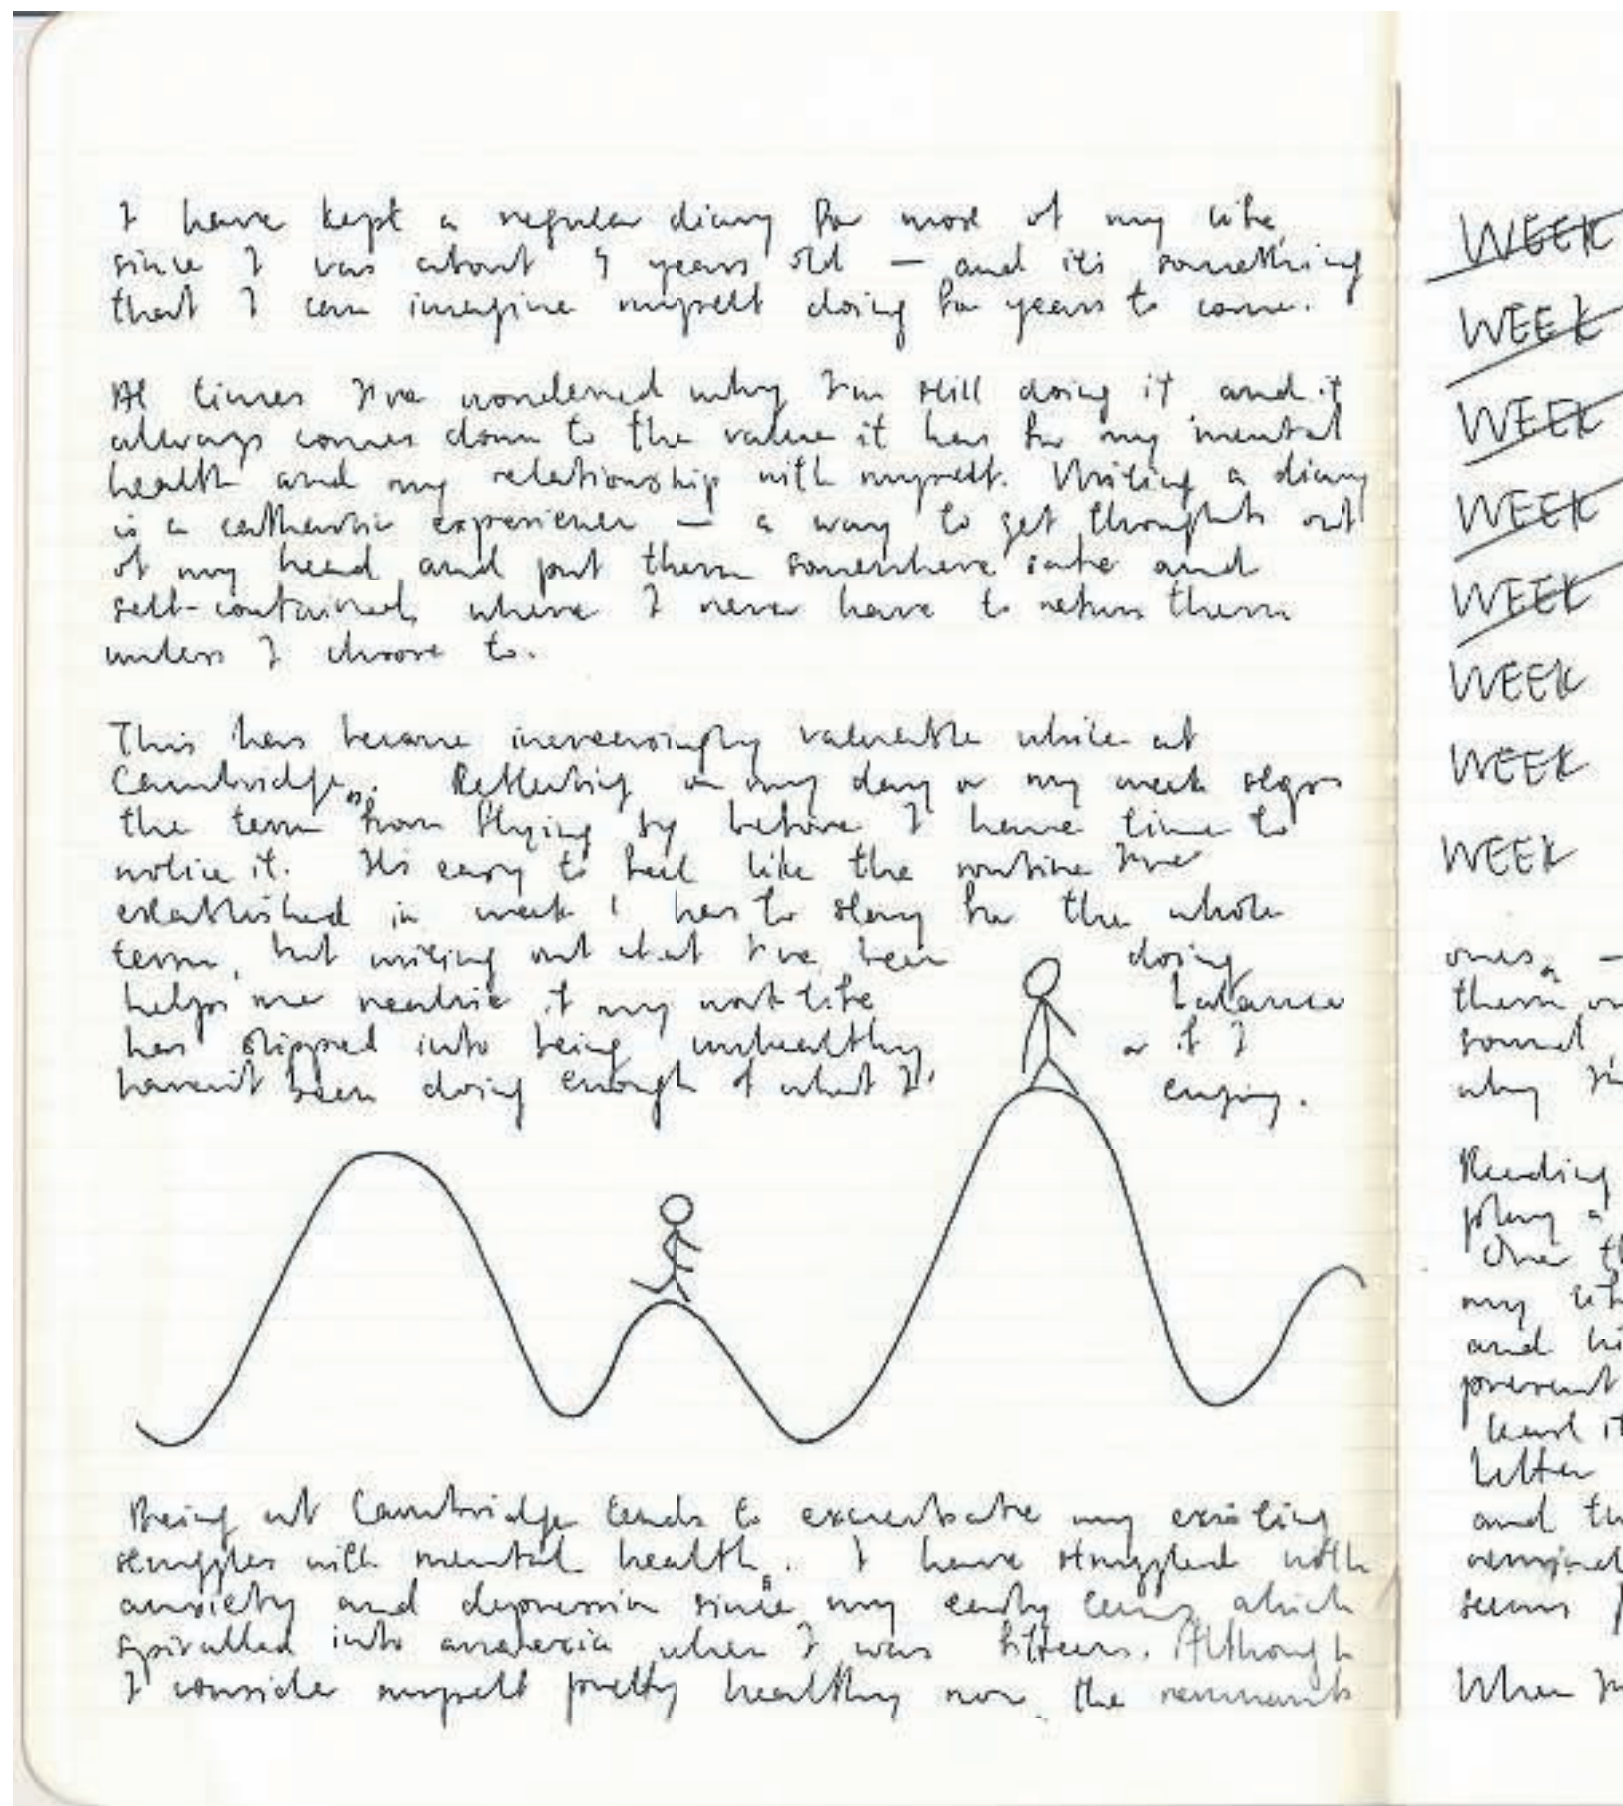 I have kept a regular diary for most of my life,
since I was about 9 years old — and it's something
that I can imagine myself doing for years to come.
At times I've wondered why I'm still doing it and it
always comes down to the value it has for my mental
health and my relationship with myself. Writing a diary
is a cathartic experience — a way to get thoughts out
of my head and put them somewhere safe and
self-contained, where I never have to return them
unless I choose to.
This has become increasingly valuable while at
Cambridge. Reflecting on my day or my week stops
the term from flying by before I have time to
notice it. It's easy to feel like the routine I've
established in week 1 has to stay for the whole
term, but writing out what I've been doing
helps me realise if my work-life balance
has slipped into being unhealthy or if I
haven't been doing enough of what I enjoy.
Being at Cambridge tends to exacerbate my existing
struggles with mental health. I have struggled with
anxiety and depression since my early teens which
spiralled into anorexia when I was fifteen. Although
I consider myself pretty healthy now, the remnants
WEEK
WEEK
WEEK
WEEK
WEEK
WEEK
WEEK
WEEK
ones, —
them
sound
why
Reading
play a
One
my
and
prevent
least it
letter
and
seems
When